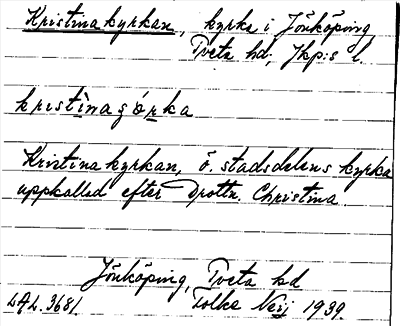 Kristinakyrkan, kyrka i Jönköping
Tveta hd, Jkp:s l.
Kristinakyrkan, ö. stadsdelens kyrka
uppkallad efter Drottn. Christina
Jönköping, Tveta hd
LAL. 3681. Folke Neij 1939.